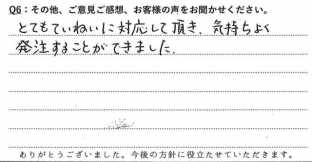 Q6：その他、ご意見ご感想、お客様の声をお聞かせください。
とてもていねいに対応して頂き、気持ちよく
発注することができました。
ありがとうございました。今後の方針に役立たせていただきます。